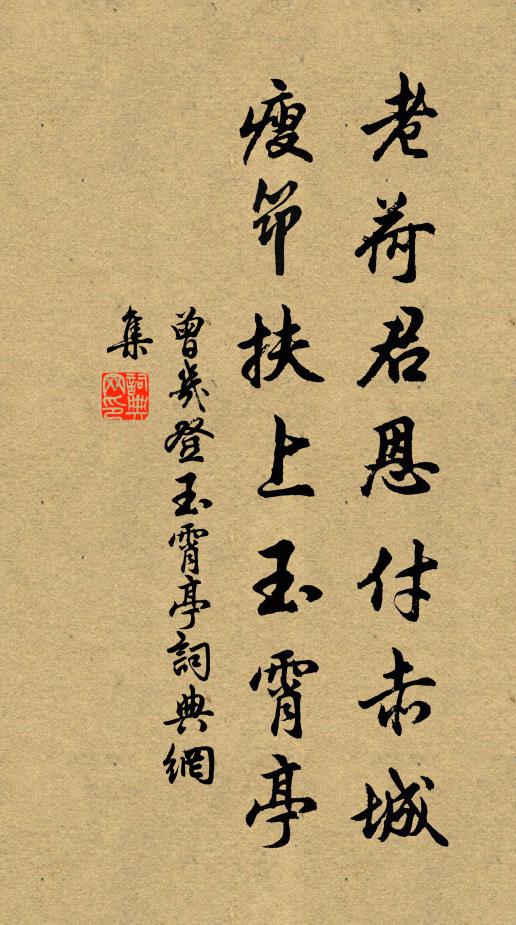 老荷君恩付赤城
瘦筇扶上玉霄亭
曾幾登玉霄亭詞典網
集
詞典網印